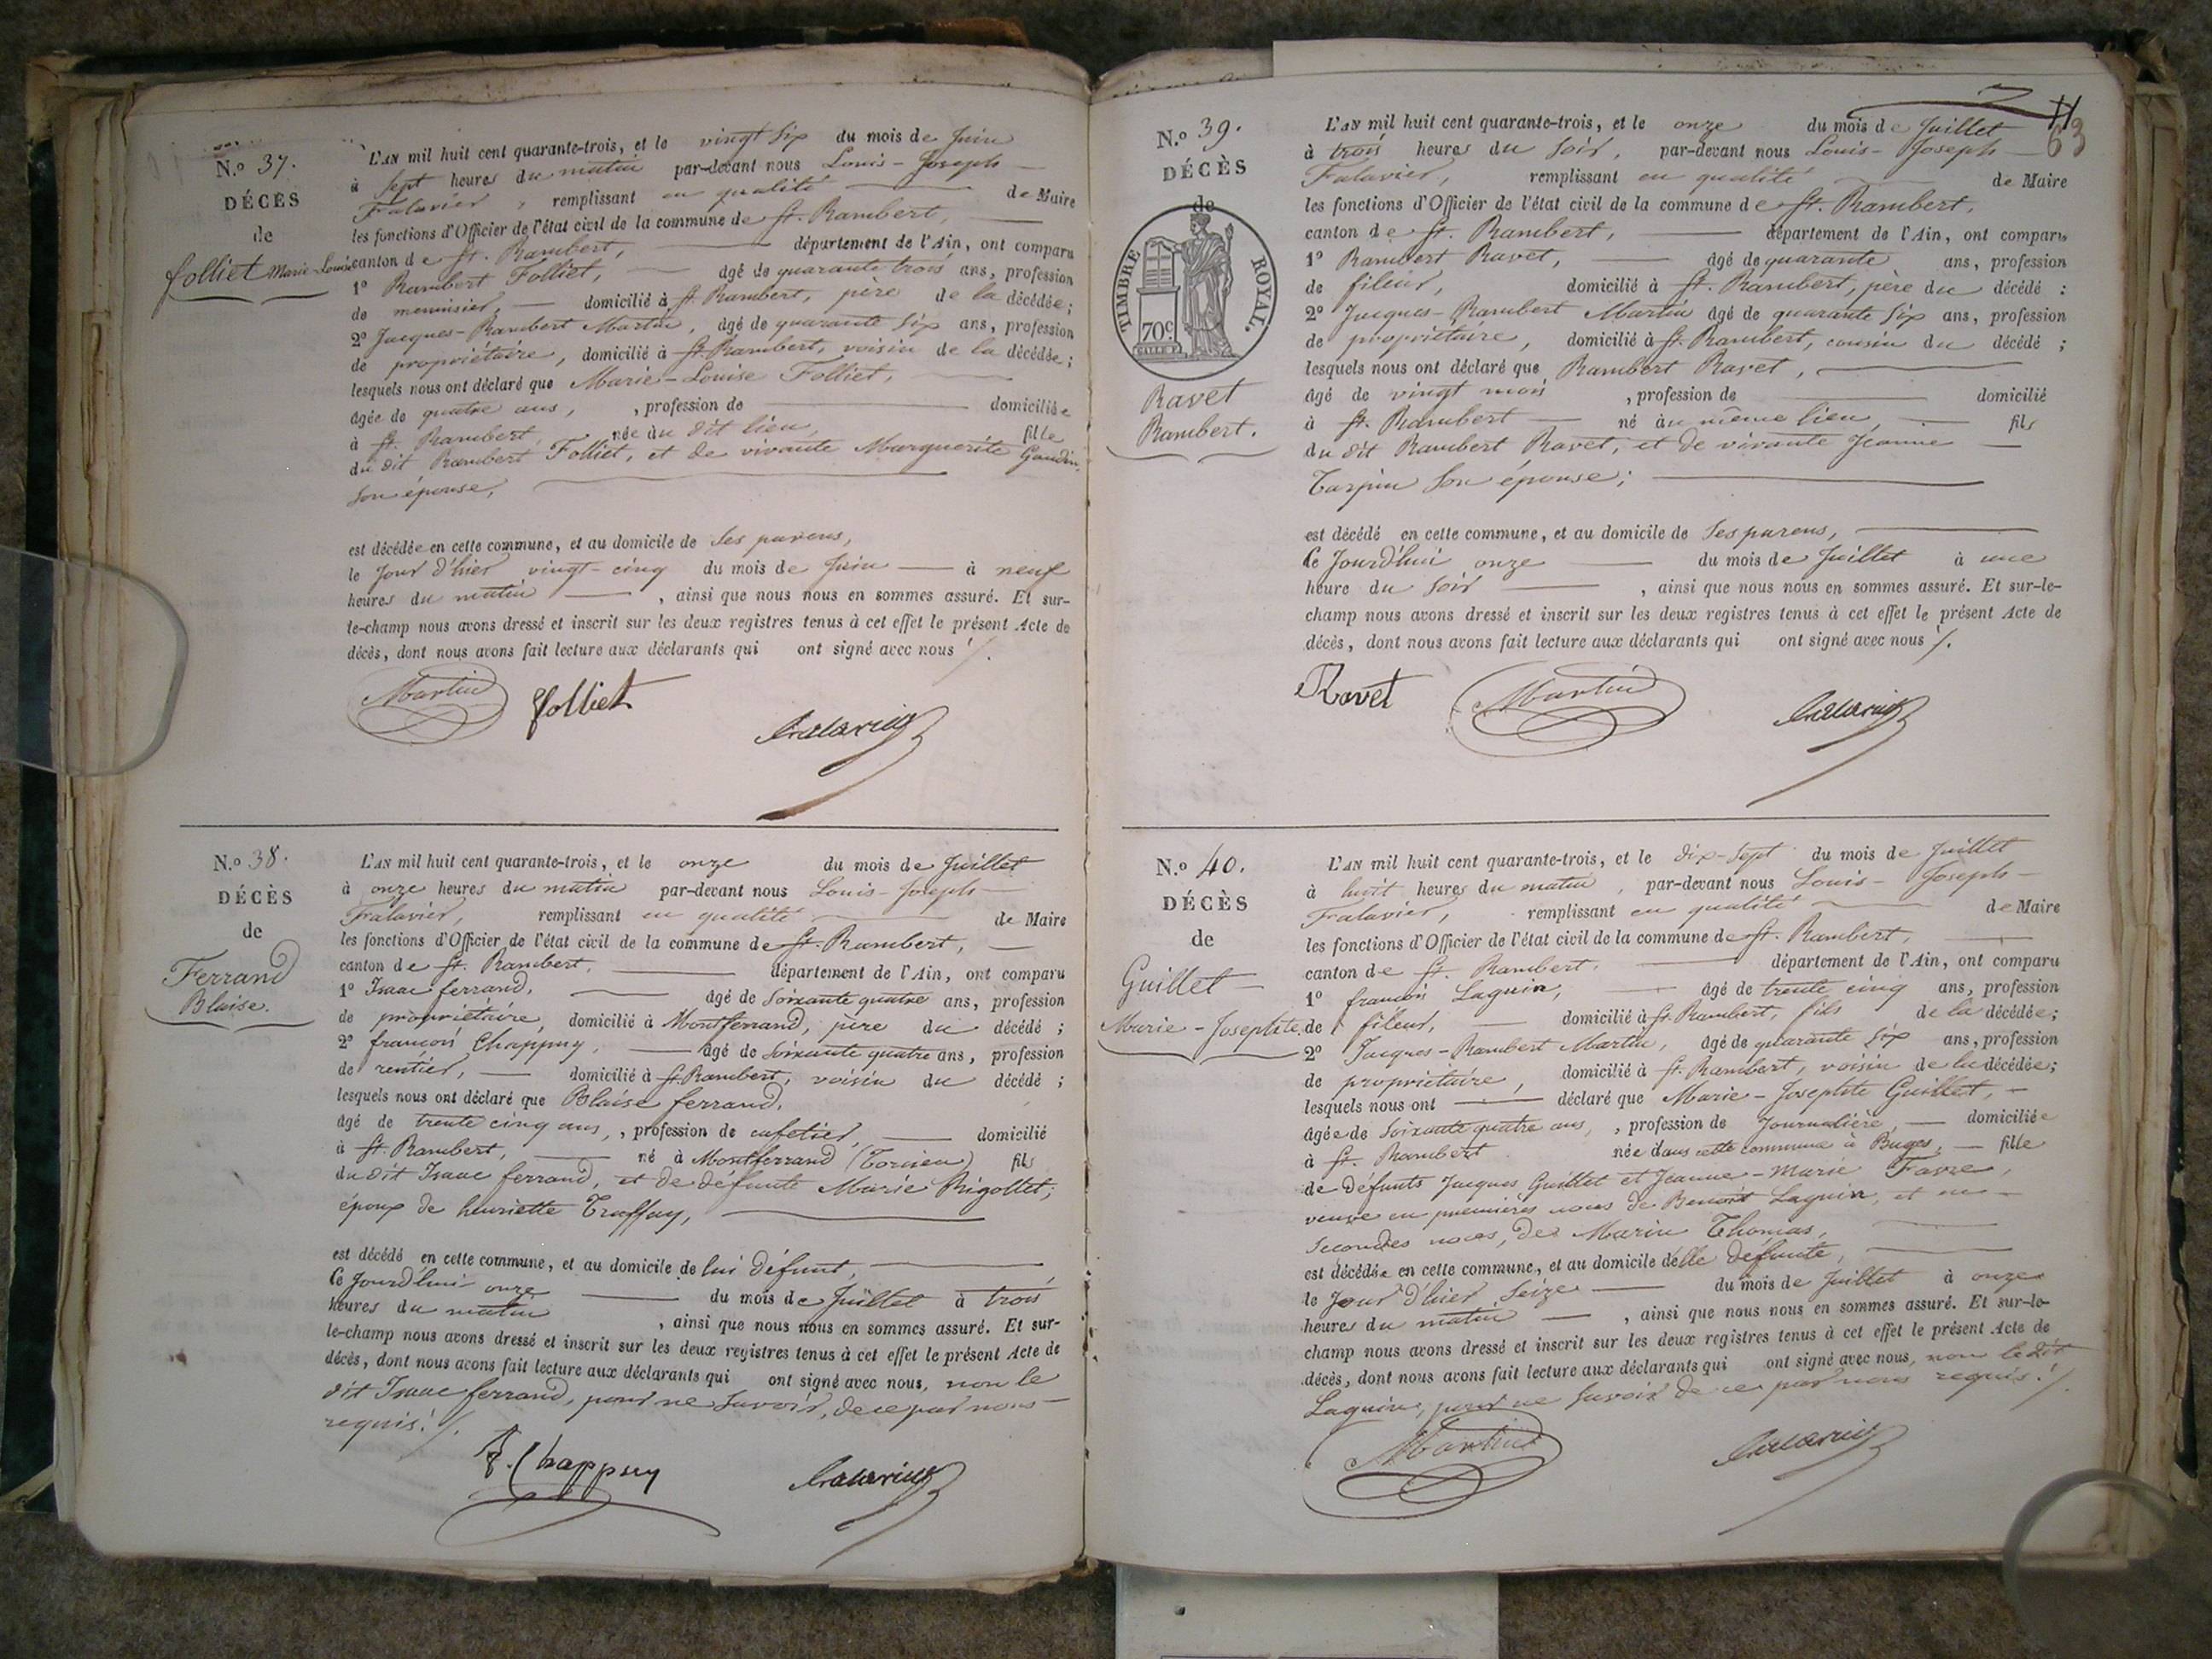 N.o 37.
DÉCÈS
de
Folliet Marie-Louise
L'AN mil huit cent quarante-trois, et le vingt six du mois de Juin
à sept heures du matin par-devant nous Louis-Joseph
Falavier, remplissant en qualité de Maire
les fonctions d'Officier de l'état civil de la commune de St. Rambert,
canton de St. Rambert, département de l'Ain, ont comparu
1o Rambert Folliet, âgé de quarante trois ans, profession
de menuisier, domicilié à St. Rambert, père de la décédée;
2o Jacques-Rambert Martin, âgé de quarante six ans, profession
de propriétaire, domicilié à St. Rambert, voisin de la décédée;
lesquels nous ont déclaré que Marie-Louise Folliet,
âgée de quatre ans, , profession de domiciliée
à St. Rambert, née au dit lieu, fille
du dit Rambert Folliet, et de vivante Marguerite Gaudin,
son épouse,
est décédée en cette commune, et au domicile de ses parens,
le jour d'hier vingt-cinq du mois de Juin à neuf
heures du matin , ainsi que nous nous en sommes assuré. Et sur-
le-champ nous avons dressé et inscrit sur les deux registres tenus à cet effet le présent Acte de
décès, dont nous avons fait lecture aux déclarants qui ont signé avec nous ./.
Martin Folliet Falavier
N.o 38.
DÉCÈS
de
Ferrand
Blaise.
L'AN mil huit cent quarante-trois, et le onze du mois de Juillet
à onze heures du matin par-devant nous Louis-Joseph
Falavier, remplissant en qualité de Maire
les fonctions d'Officier de l'état civil de la commune de St. Rambert,
canton de St. Rambert, département de l'Ain, ont comparu
1o Isaac ferrand, âgé de soixante quatre ans, profession
de propriétaire, domicilié à Montferrand, père du décédé ;
2o françois Chappuy, âgé de soixante quatre ans, profession
de rentier, domicilié à St. Rambert, voisin du décédé ;
lesquels nous ont déclaré que Blaise ferrand,
âgé de trente cinq ans, , profession de cafetier, domicilié
à St. Rambert, né à Montferrand (Torcieu) fils
du dit Isaac ferrand, et de défunte Marie Rigollet;
époux de henriette Truffay,
est décédé en cette commune, et au domicile de lui défunt,
Ce Jourd'hui onze du mois de Juillet à trois
heures du matin , ainsi que nous nous en sommes assuré. Et sur-
le-champ nous avons dressé et inscrit sur les deux registres tenus à cet effet le présent Acte de
décès, dont nous avons fait lecture aux déclarants qui ont signé avec nous, non le
dit Isaac ferrand, pour ne savoir, de ce par nous
requis ./.
F. Chappuy Falavier
63
N.o 39.
DÉCÈS
de
TIMBRE ROYAL.
70c.
Ravet
Rambert.
L'AN mil huit cent quarante-trois, et le onze du mois de Juillet
à trois heures du soir, par-devant nous Louis-Joseph
Falavier, remplissant en qualité de Maire
les fonctions d'Officier de l'état civil de la commune de St. Rambert,
canton de St. Rambert, département de l'Ain, ont comparu
1o Rambert Ravet, âgé de quarante ans, profession
de fileur, domicilié à St. Rambert, père du décédé :
2o Jacques-Rambert Martin âgé de quarante six ans, profession
de propriétaire, domicilié à St. Rambert, cousin du décédé ;
lesquels nous ont déclaré que Rambert Ravet,
âgé de vingt mois , profession de domicilié
à St. Rambert né au même lieu, fils
du dit Rambert Ravet, et de vivante Jeanne
Tarpin son épouse;
est décédé en cette commune, et au domicile de ses parens,
Ce Jourd'hui onze du mois de Juillet à une
heure du soir , ainsi que nous nous en sommes assuré. Et sur-le-
champ nous avons dressé et inscrit sur les deux registres tenus à cet effet le présent Acte de
décès, dont nous avons fait lecture aux déclarants qui ont signé avec nous ./.
Ravet Martin Falavier
N.o 40.
DÉCÈS
de
Guillet
Marie-Josephte.
L'AN mil huit cent quarante-trois, et le dix-sept du mois de Juillet
à huit heures du matin, par-devant nous Louis-Joseph
Falavier, remplissant en qualité de Maire
les fonctions d'Officier de l'état civil de la commune de St. Rambert,
canton de St. Rambert, département de l'Ain, ont comparu
1o françois Laguin, âgé de trente cinq ans, profession
de fileur, domicilié à St. Rambert, fils de la décédée;
2o Jacques-Rambert Martin, âgé de quarante six ans, profession
de propriétaire, domicilié à St. Rambert, voisin de la décédée;
lesquels nous ont déclaré que Marie-Josephte Guillet,
âgée de soixante quatre ans, , profession de Journalière, domiciliée
à St. Rambert née dans cette commune à Buges, fille
de défunts Jacques Guillet et Jeanne-Marie Favre,
veuve en premières noces de Benoit Laguin, et en
secondes noces, de Marin Thomas,
est décédée en cette commune, et au domicile d'elle défunte,
le jour d'hier seize du mois de Juillet à onze
heures du matin , ainsi que nous nous en sommes assuré. Et sur-le-
champ nous avons dressé et inscrit sur les deux registres tenus à cet effet le présent Acte de
décès, dont nous avons fait lecture aux déclarants qui ont signé avec nous, non le dit
Laguin, pour ne savoir de ce par nous requis ./.
Martin Falavier